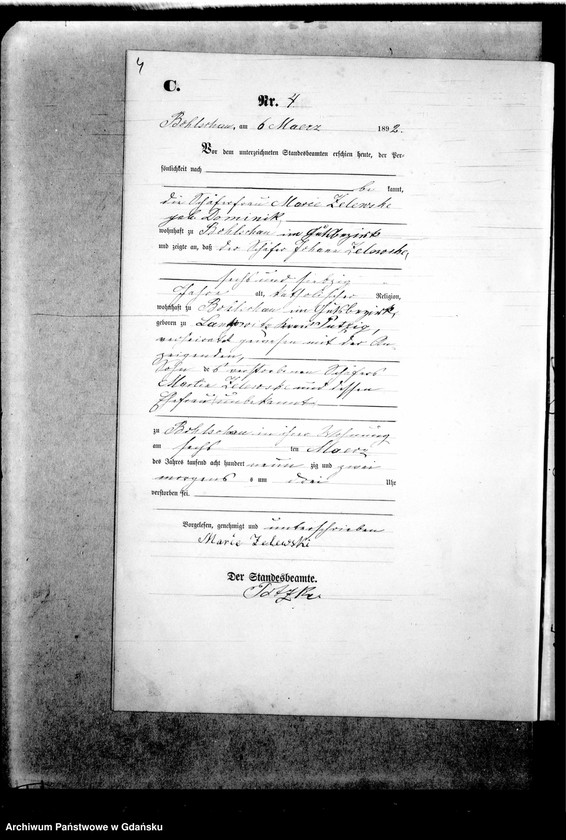 4
C.
Nr. 4
Bohlschau, am 6 Maerz 1892.
Vor dem unterzeichneten Standesbeamten erschien heute, der Per-
sönlichkeit nach
be kannt,
die Schäferfrau Marie Zelewske
geb. Dominik
wohnhaft zu Bohlschau im Gutsbezirk
und zeigte an, daß der Schäfer Johann Zelewske,
sechs und siebzig
Jahre alt, katholischer Religion,
wohnhaft zu Bohlschau im Gutsbezirk,
geboren zu Kreis Putzig,
verheirathet gewesen mit der An-
zeigenden,
Sohn des verstorbenen Schäfers
Martin Zelewske und dessen
Ehefrau unbekannt
zu Bohlschau in ihrer Wohnung
am sechs ten Maerz
des Jahres tausend acht hundert neun zig und zwei
morgens um drei Uhr
verstorben sei.
Vorgelesen, genehmigt und unterschrieben
Marie Zelewski
Der Standesbeamte.
Archiwum Państwowe w Gdańsku